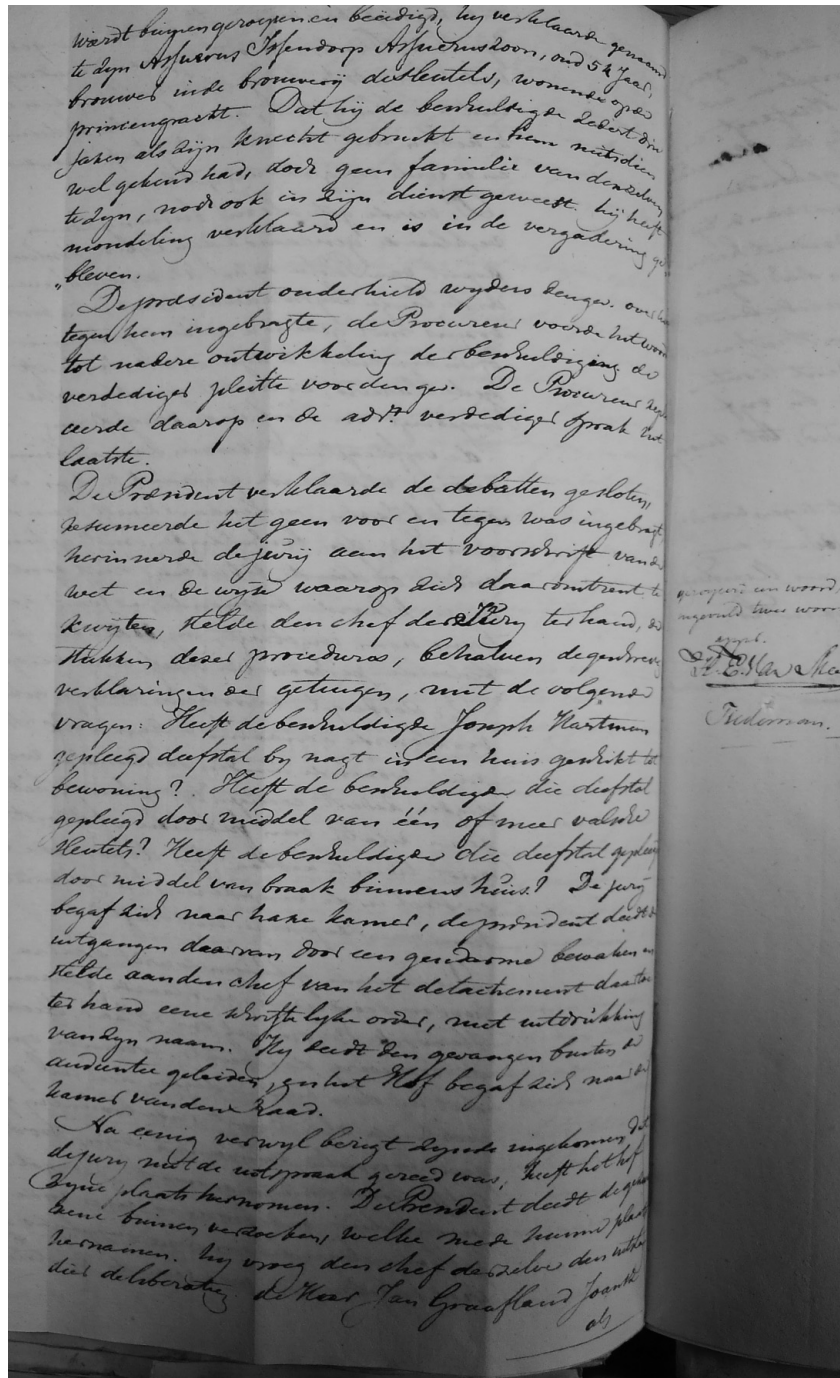 wierdt binnen geroepen en beëedigd, hy verklaarde genaamd
te zyn Assuerus Issendorp Assuerus zoon, oud 52 Jaar,
brouwer in de brouwerij de Sleutels, wonende op de
princengracht. Dat hij de beschuldigde zedert drie
jaren als zijn knecht gebruikt en hem uit dien
wel gekend had, doch geen familie van denzelven
te zyn, noch ook in zijn dienst geweest. hij heeft
mondeling verklaard en is in de vergadering ge
„bleven.
De president onderhield wyders beuger. over het
tegen hem ingebragte, de Procureur voerde het woord
tot nadere ontwikkeling der beschuldiging de
verdediger pleitte voor den ger. De Procureur repli
ceerde daarop en de adv.t verdediger sprak het
laatste.
De President verklaarde de debatten gesloten,
resumeerde het geen voor en tegen was ingebragt
herinnerde de jurij aan het voorschrift van de
wet en de wyse waarop zich daaromtrent te
kwijten, stelde den chef der Jury ter hand, de
stukken dezer procedures, behalven de geschreven
verklaringen der getuigen, met de volgende
vragen: Heeft de beschuldigde Joseph Hartman
gepleegd diefstal by nagt in een huis geschikt tot
bewoning? Heeft de beschuldigde die diefstal
gepleegd door middel van één of meer valsche
sleutels? Heeft de beschuldigde die diefstal gepleegd
door middel van braak binnens huis? De jurij
begaf zich naar hare kamer, de president deedt de
uitgangen daarvan door een gendarme bewaken en
stelde aan den chef van het detachement daartoe
ter hand eene schriftelyke order, met uitdrukking
van zyn naam. Hy deedt den gevangen buiten de
audientie geleiden, en het Hof begaf zich naar de
kamer van den Raad.
Na eenig verwyl berigt zynde ingekomen, dat
de jury met de uitspraak gereed was, heeft het hof
zyne plaats hernomen. De President deedt de
binnen verzoeken, welke mede hunne plaats
hernamen. hy vroeg den chef derzelve den uitslag
dier deliberatien. de Heer Jan Graafland Joansz
als
een woord
twee woor
Tiedeman.